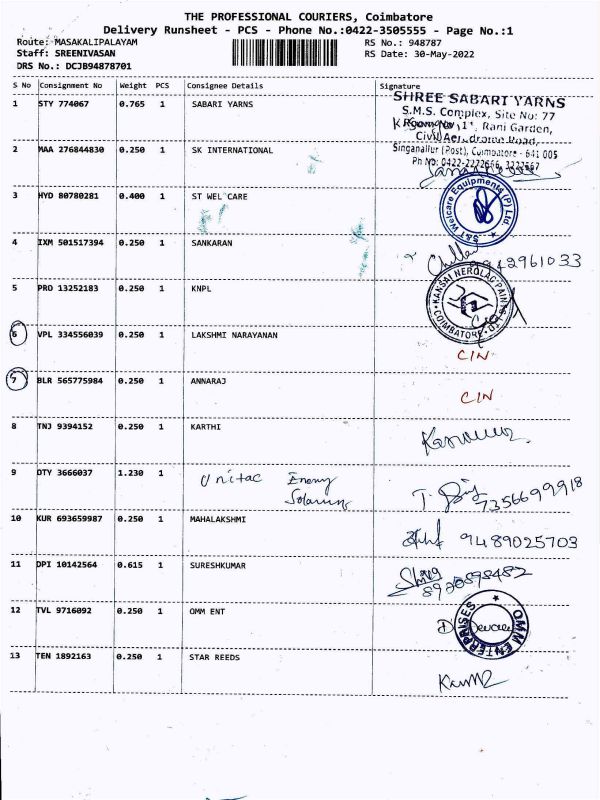 THE PROFESSIONAL COURIERS, Coimbatore
Delivery Runsheet - PCS - Phone No.:0422-3505555 - Page No.:1
Route: MASAKALIPALAYAM
RS No.: 948787
Staff: SREENIVASAN
RS Date: 30-May-2022
DRS No.: DCJB94878701
S No Consignment No Weight PCS Consignee Details Signature
1 STY 774067 0.765 1 SABARI YARNS
SHREE SABARI YARNS
S.M.S. Complex, Site No: 77
Rani Garden,
Civil Aerodrome Road,
Singanallur (Post), Coimbatore - 641 005
Ph No: 0422-2272666, 3222667
2 MAA 276844830 0.250 1 SK INTERNATIONAL
3 HYD 80780281 0.400 1 ST WEL CARE
S&T Welcare Equipments (P) Ltd.
4 IXM 501517394 0.250 1 SANKARAN
9942961033
5 PRO 13252183 0.250 1 KNPL
KANSAI NEROLAC PAINTS LTD
COIMBATORE
6 VPL 334556039 0.250 1 LAKSHMI NARAYANAN
CIN
7 BLR 565775984 0.250 1 ANNARAJ
CIN
8 TNJ 9394152 0.250 1 KARTHI
9 DTY 3666037 1.230 1 Unitac Energy
7356699918
10 KUR 693659987 0.250 1 MAHALAKSHMI
9489025703
11 DPI 10142564 0.615 1 SURESHKUMAR
12 TVL 9716092 0.250 1 OMM ENT
OMM ENTERPRISES
13 TEN 1892163 0.250 1 STAR REEDS